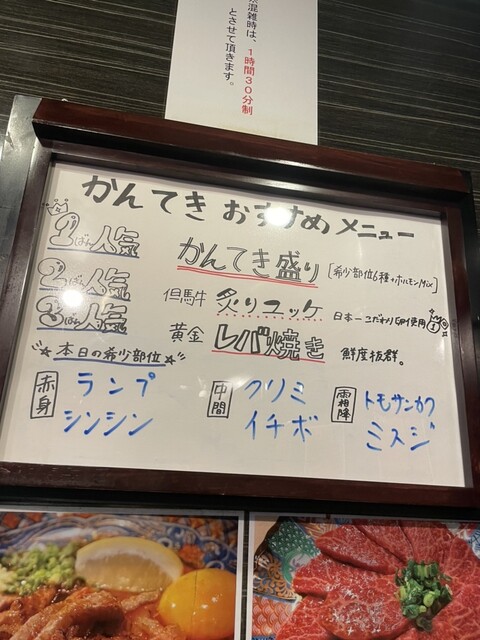 混雑時は、1時間30分制
とさせて頂きます。
かんてき おすすめ メニュー
1ばん人気 かんてき盛り [希少部位6種+ホルモンMix]
2ばん人気 但馬牛 炙りユッケ 日本一こだわり卵使用
3ばん人気 黄金 レバ焼き 鮮度抜群。
☆本日の希少部位☆
赤身 ランプ シンシン
中間 クリミ イチボ
霜降 トモサンカク ミスジ